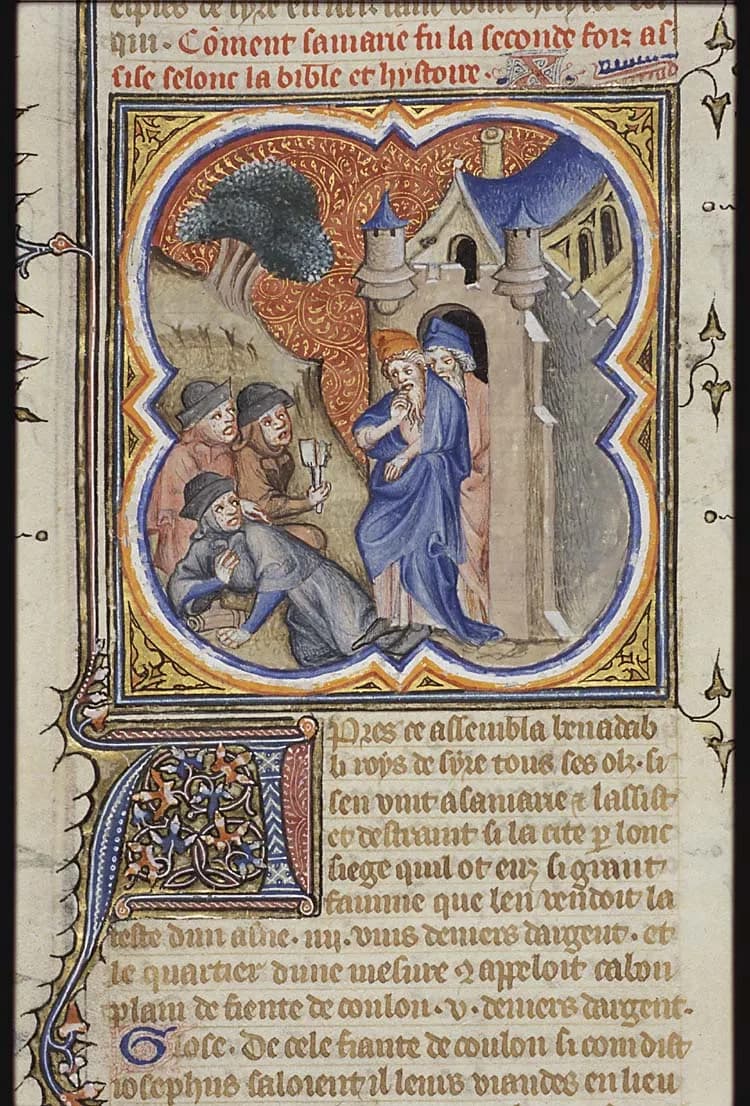 ciples de syre en
qui. Cōment samarie fu la seconde foiz as
sise selonc la bible et hystoire.
Apres ce assembla benadab
li roys de syre tous ses olz. si
sen vint a samarie ⁊ lassist
et destraint si la cite p̱ lonc
siege quil ot eux si grant
famine que len vendoit la
teste dun asne. iiij. vins deniers dargent. et
le quartier dune mesure ⁊ appeloit cabon
plain de fiente de coulon. v. deniers dargent.
Glose. De cele fiante de coulon si com dist
iosephus saloient il leurs viandes en lieu